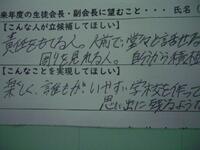 来年度の生徒会長・副会長に望むこと・・・ 氏名(
【こんな人が立候補してほしい】
責任をもてる人。人前で堂々と話せる
周りを見れる人。自分から積極
【こんなことを実現してほしい】
楽しく、誰もがいやすい学校を作って
思い出に残るような